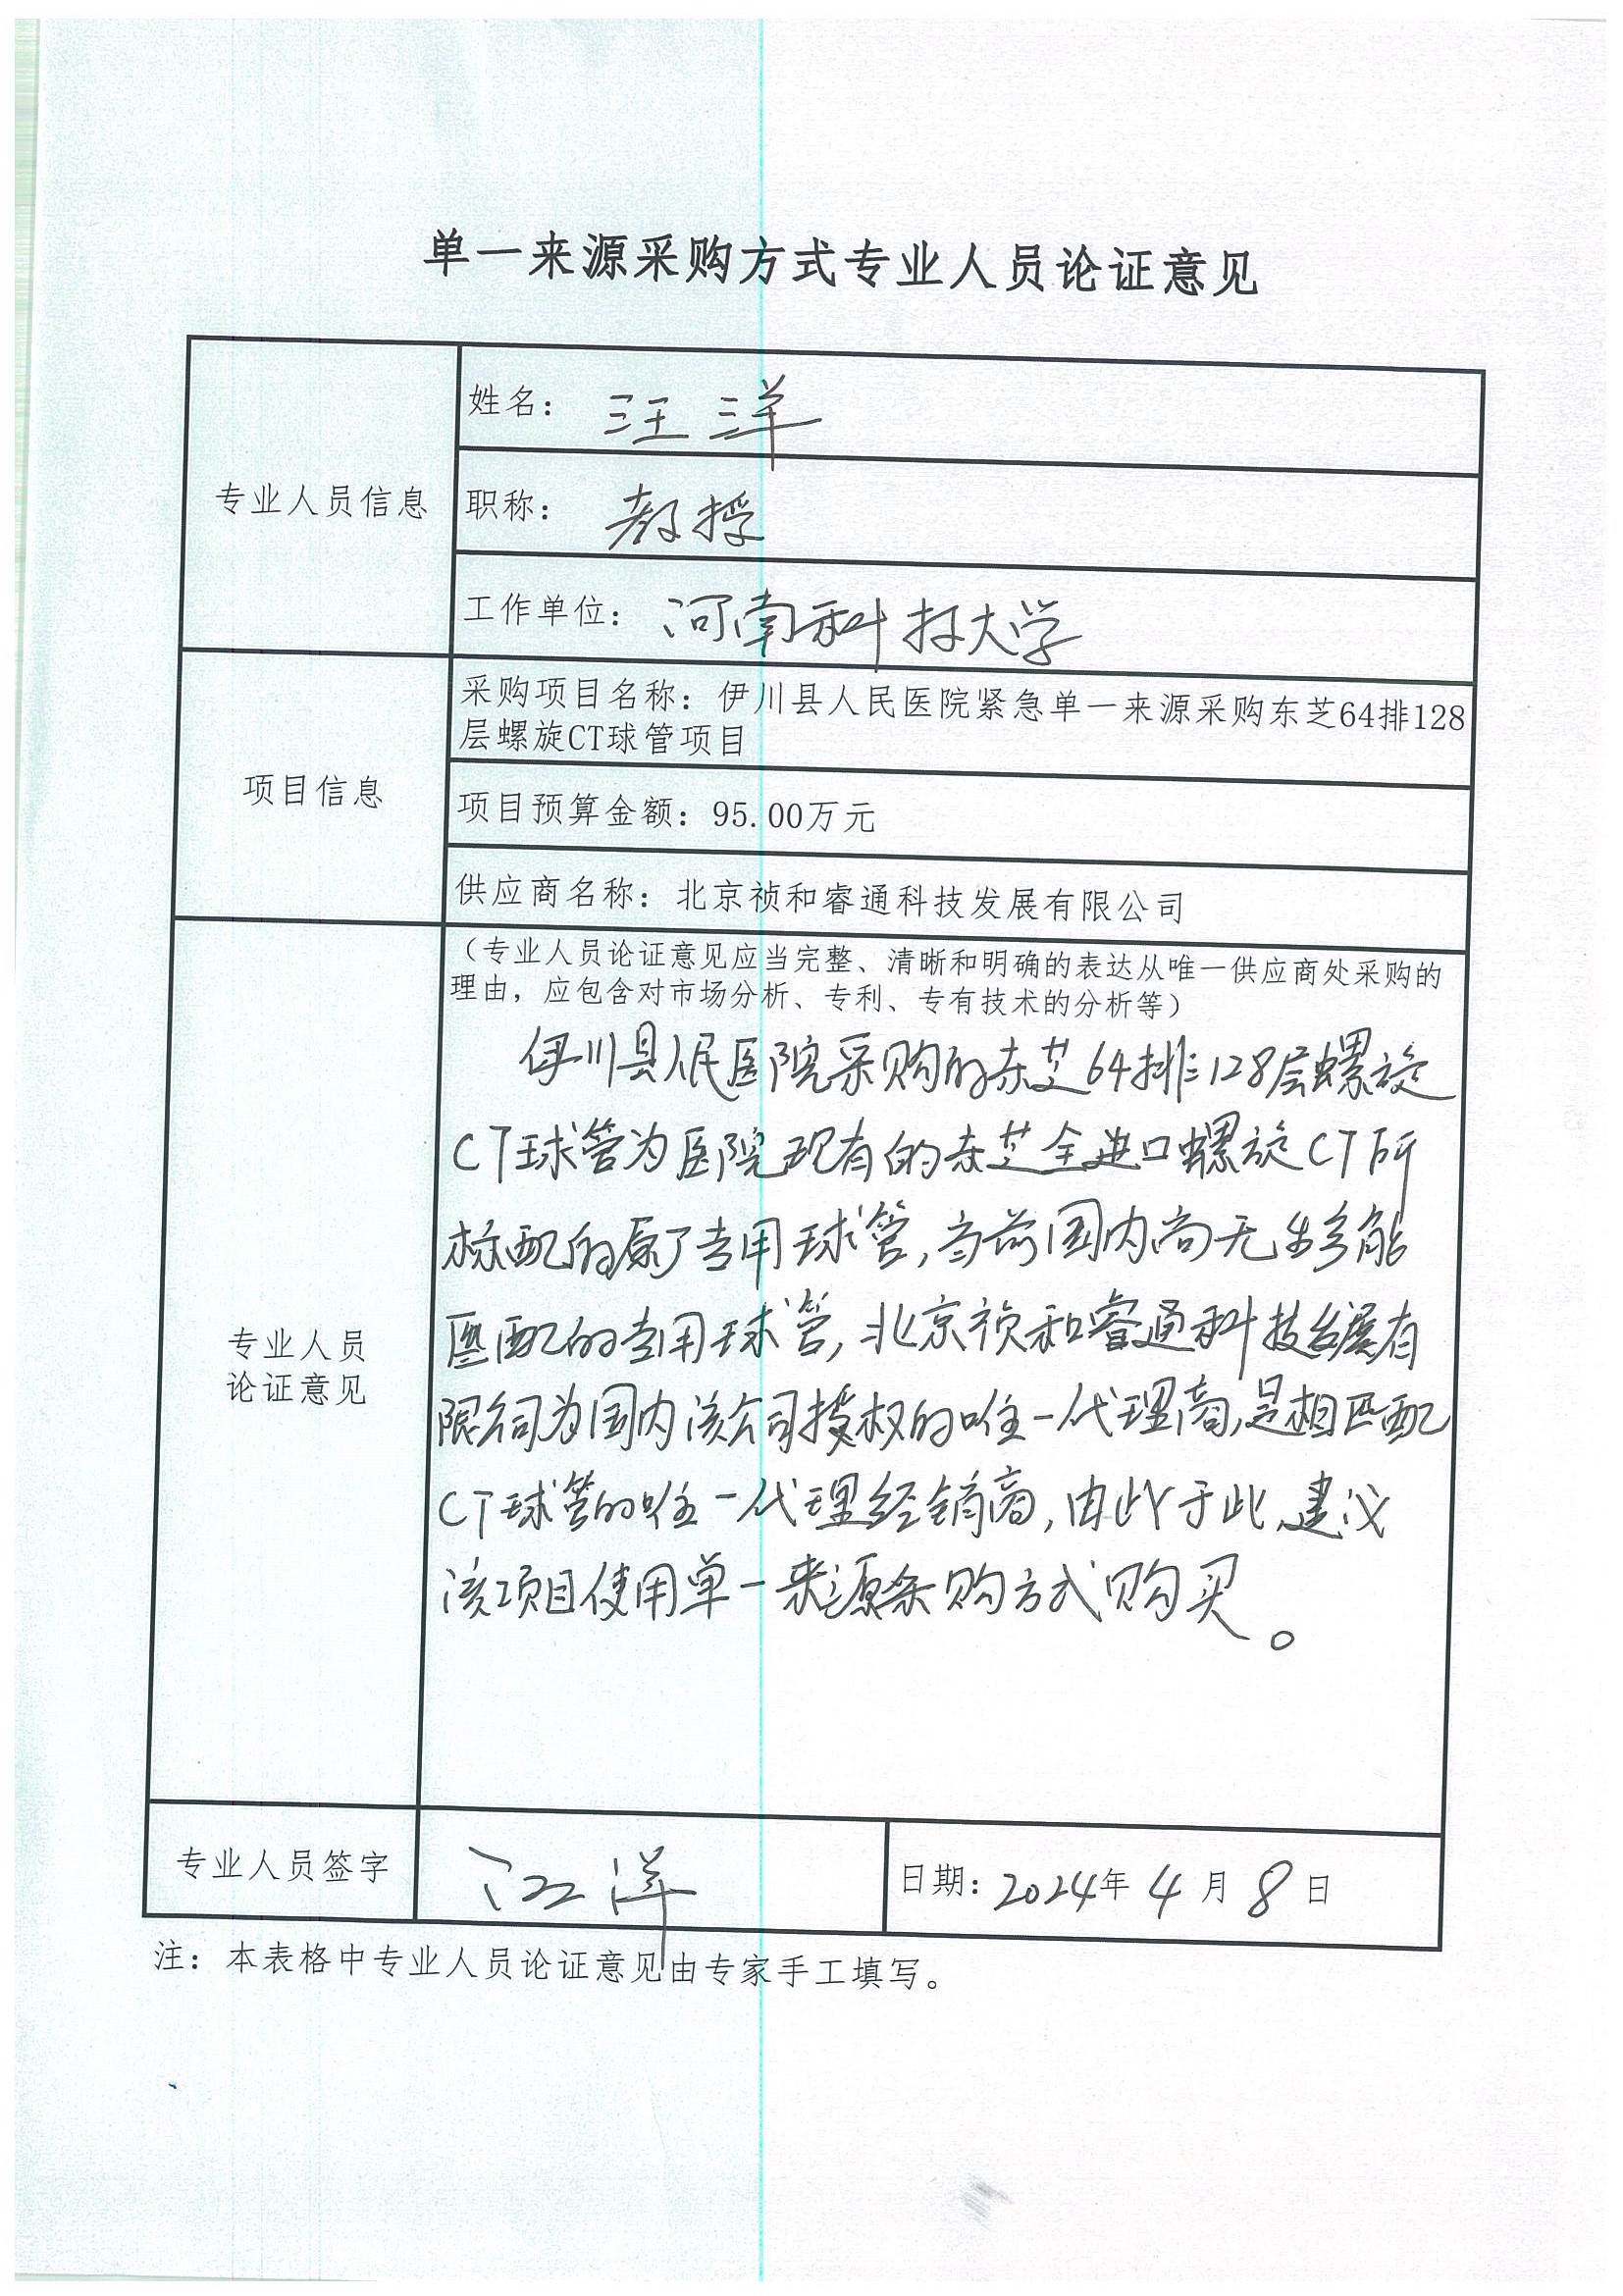 单一来源采购方式专业人员论证意见
专业人员信息
姓名：汪洋
职称：教授
工作单位：河南科技大学
项目信息
采购项目名称：伊川县人民医院紧急单一来源采购东芝64排128
层螺旋CT球管项目
项目预算金额：95.00万元
供应商名称：北京祯和睿通科技发展有限公司
专业人员
论证意见
（专业人员论证意见应当完整、清晰和明确的表达从唯一供应商处采购的
理由，应包含对市场分析、专利、专有技术的分析等）
伊川县人民医院采购的东芝64排128层螺旋
CT球管为医院现有的东芝全进口螺旋CT所
标配的原厂专用球管，当前国内尚无生产能
匹配的专用球管，北京祯和睿通科技发展有
限公司为国内该公司授权的唯一代理商，是相匹配
CT球管的唯一代理经销商，由于此，建议
该项目使用单一来源采购方式购买。
专业人员签字
汪洋
日期：2024年4月8日
注：本表格中专业人员论证意见由专家手工填写。